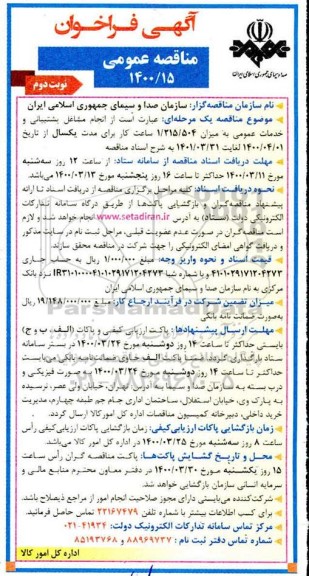 آگهی فراخوان
مناقصه عمومی
۱۴۰۰/۱۵
نوبت دوم
صدا و سیمای جمهوری اسلامی ایران
نام سازمان مناقصه‌گزار: سازمان صدا و سیمای جمهوری اسلامی ایران
موضوع مناقصه یک مرحله‌ای: عبارت است از انجام مشاغل پشتیبانی و
خدمات عمومی به میزان ۱/۲۱۵/۵۰۴ ساعت کار برای مدت یکسال از تاریخ
۱۴۰۰/۰۴/۰۱ لغایت ۱۴۰۱/۰۳/۳۱ به شرح اسناد مناقصه
مهلت دریافت اسناد مناقصه از سامانه ستاد: از ساعت ۱۲ روز سه‌شنبه
مورخ ۱۴۰۰/۰۳/۱۱ حداکثر تا ساعت ۱۶ روز پنجشنبه مورخ ۱۴۰۰/۰۳/۱۳ می‌باشد
نحوه دریافت اسناد: کلیه مراحل برگزاری مناقصه از دریافت اسناد تا ارائه
پیشنهاد مناقصه‌گران و بازگشایی پاکت‌ها از طریق درگاه سامانه تدارکات
الکترونیکی دولت (ستاد) به آدرس www.setadiran.ir انجام خواهد شد و لازم
است مناقصه‌گران در صورت عدم عضویت قبلی، مراحل ثبت نام در سایت مذکور
و دریافت گواهی امضای الکترونیکی را جهت شرکت در مناقصه محقق سازند.
قیمت اسناد و نحوه واریز وجه: مبلغ ۱/۰۰۰/۰۰۰ ریال به حساب جاری
نزد بانک
مرکزی به نام سازمان صدا و سیمای جمهوری اسلامی ایران
میزان تضمین شرکت در فرآیند ارجاع کار: مبلغ ۱۹/۱۴۸/۰۰۰/۰۰۰ ریال
به‌صورت ضمانت نامه بانکی
مهلت ارسال پیشنهادها: پاکت ارزیابی کیفی و پاکات (الف، ب و ج)
بایستی حداکثر تا ساعت ۱۴ روز دوشنبه مورخ ۱۴۰۰/۰۳/۲۴ در بستر سامانه
ستاد بارگذاری گردد. ضمنا پاکت الف حاوی ضمانت‌نامه بانکی می‌بایست
حداکثر تا ساعت ۱۴ روز دوشنبه مورخ ۱۴۰۰/۰۳/۲۴ به صورت فیزیکی و
درب بسته به سازمان صدا و سیما به آدرس: تهران، خیابان ولی عصر، نرسیده
به پارک وی، خیابان استقلال، ساختمان اداری جام جم طبقه چهارم، مدیریت
خرید داخلی، دبیرخانه کمیسیون مناقصات اداره کل امورکالا ارسال گردد.
زمان بازگشایی پاکات ارزیابی‌کیفی: زمان بازگشایی پاکات ارزیابی‌کیفی رأس
ساعت ۸ روز سه‌شنبه مورخ ۱۴۰۰/۰۳/۲۵ در اداره کل امور کالا می‌باشد.
محل و تاریخ گشایش پاکت‌ها: پاکت مناقصه گران رأس ساعت
۱۵ روز یکشنبه مورخ ۱۴۰۰/۰۳/۳۰ در دفتر معاون محترم منابع مالی و
سرمایه انسانی سازمان بازگشایی خواهد شد.
شرکت‌کننده می‌بایستی دارای مجوز صلاحیت انجام امور از مراجع ذیصلاح باشد.
برای کسب اطلاعات بیشتر با شماره تلفن ۲۲۱۶۷۴۷۹ تماس حاصل فرمائید.
مرکز تماس سامانه تدارکات الکترونیک دولت: ۰۲۱-۴۱۹۳۴
شماره تماس دفتر ثبت نام: ۸۸۹۶۹۷۳۷ و ۸۵۱۹۳۷۶۸
اداره کل امور کالا